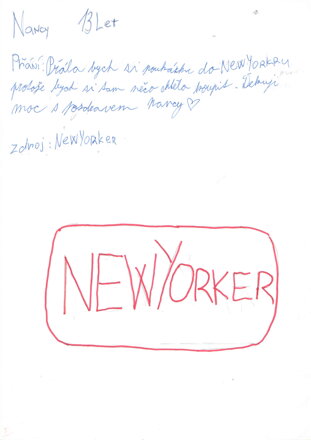 Nancy 13 Let
Přání: Přála bych si poukázku do NEWYORKRU
protože bych si tam něco chtěla koupit. Děkuji
moc s pozdravem Nancy ♡
zdroj: NEWYORKER
NEWYORKER